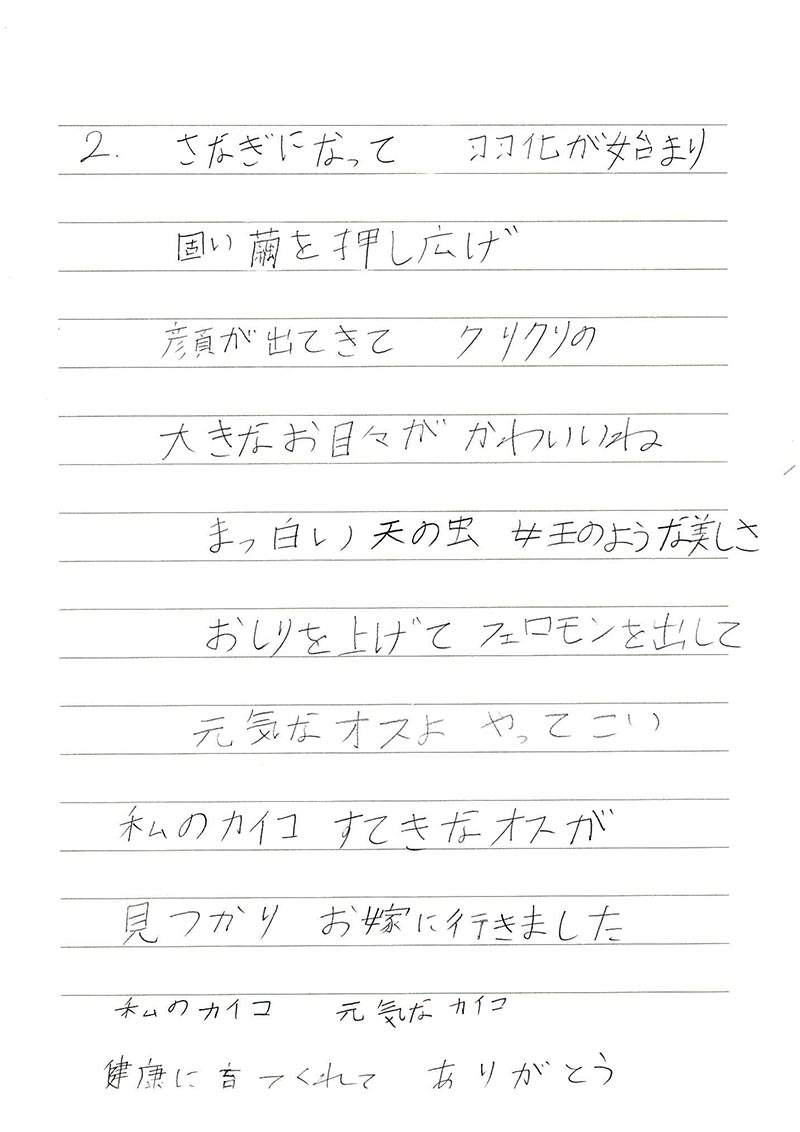 2. さなぎになって 羽化が始まり
固い繭を押し広げ
顔が出てきて クリクリの
大きなお目々が かわいいね
まっ白い天の虫 女王のような美しさ
おしりを上げて フェロモンを出して
元気なオスよ やってこい
私のカイコ すてきなオスが
見つかり お嫁に行きました
私のカイコ 元気なカイコ
健康に育つくれて ありがとう